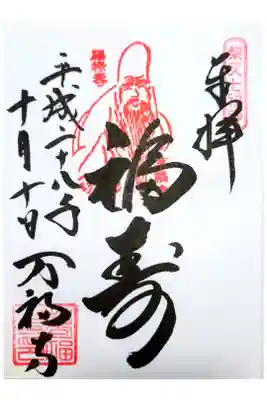 奉拝
福寿
平成二十八年
十月十日
万福寺
福禄寿